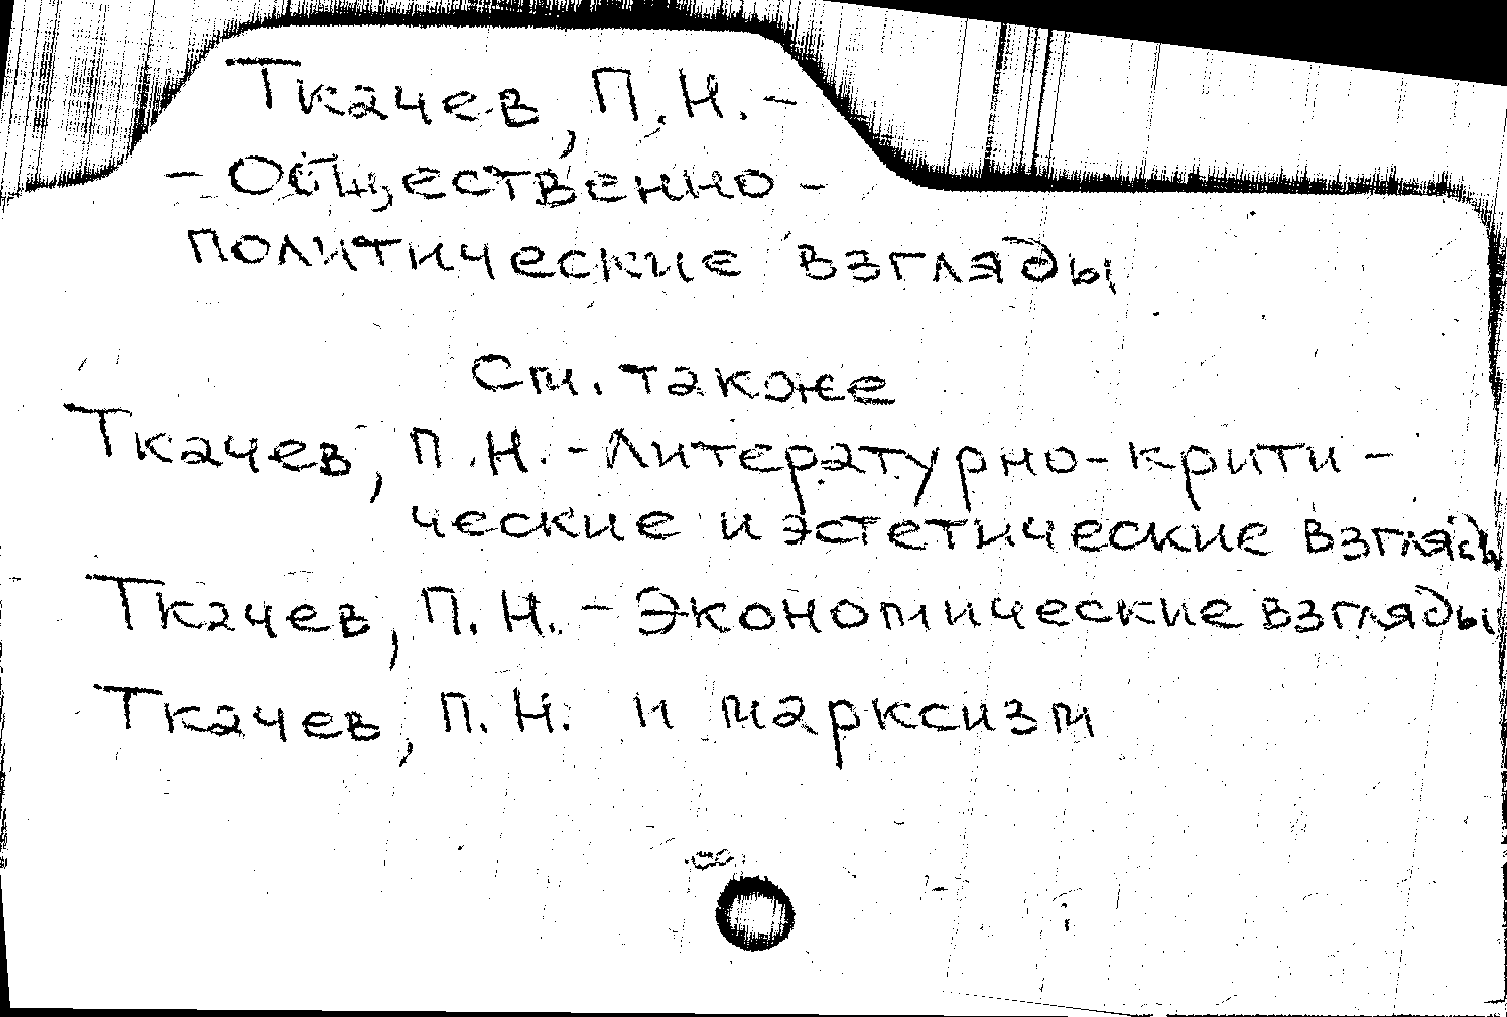 Ткачев, П.Н. -
- Общественно -
политические взгляды
См. также
Ткачев, П.Н. - Литературно-крити -
ческие и эстетические взгляды
Ткачев, П.Н. - Экономические взгляды
Ткачев, П.Н. и марксизм